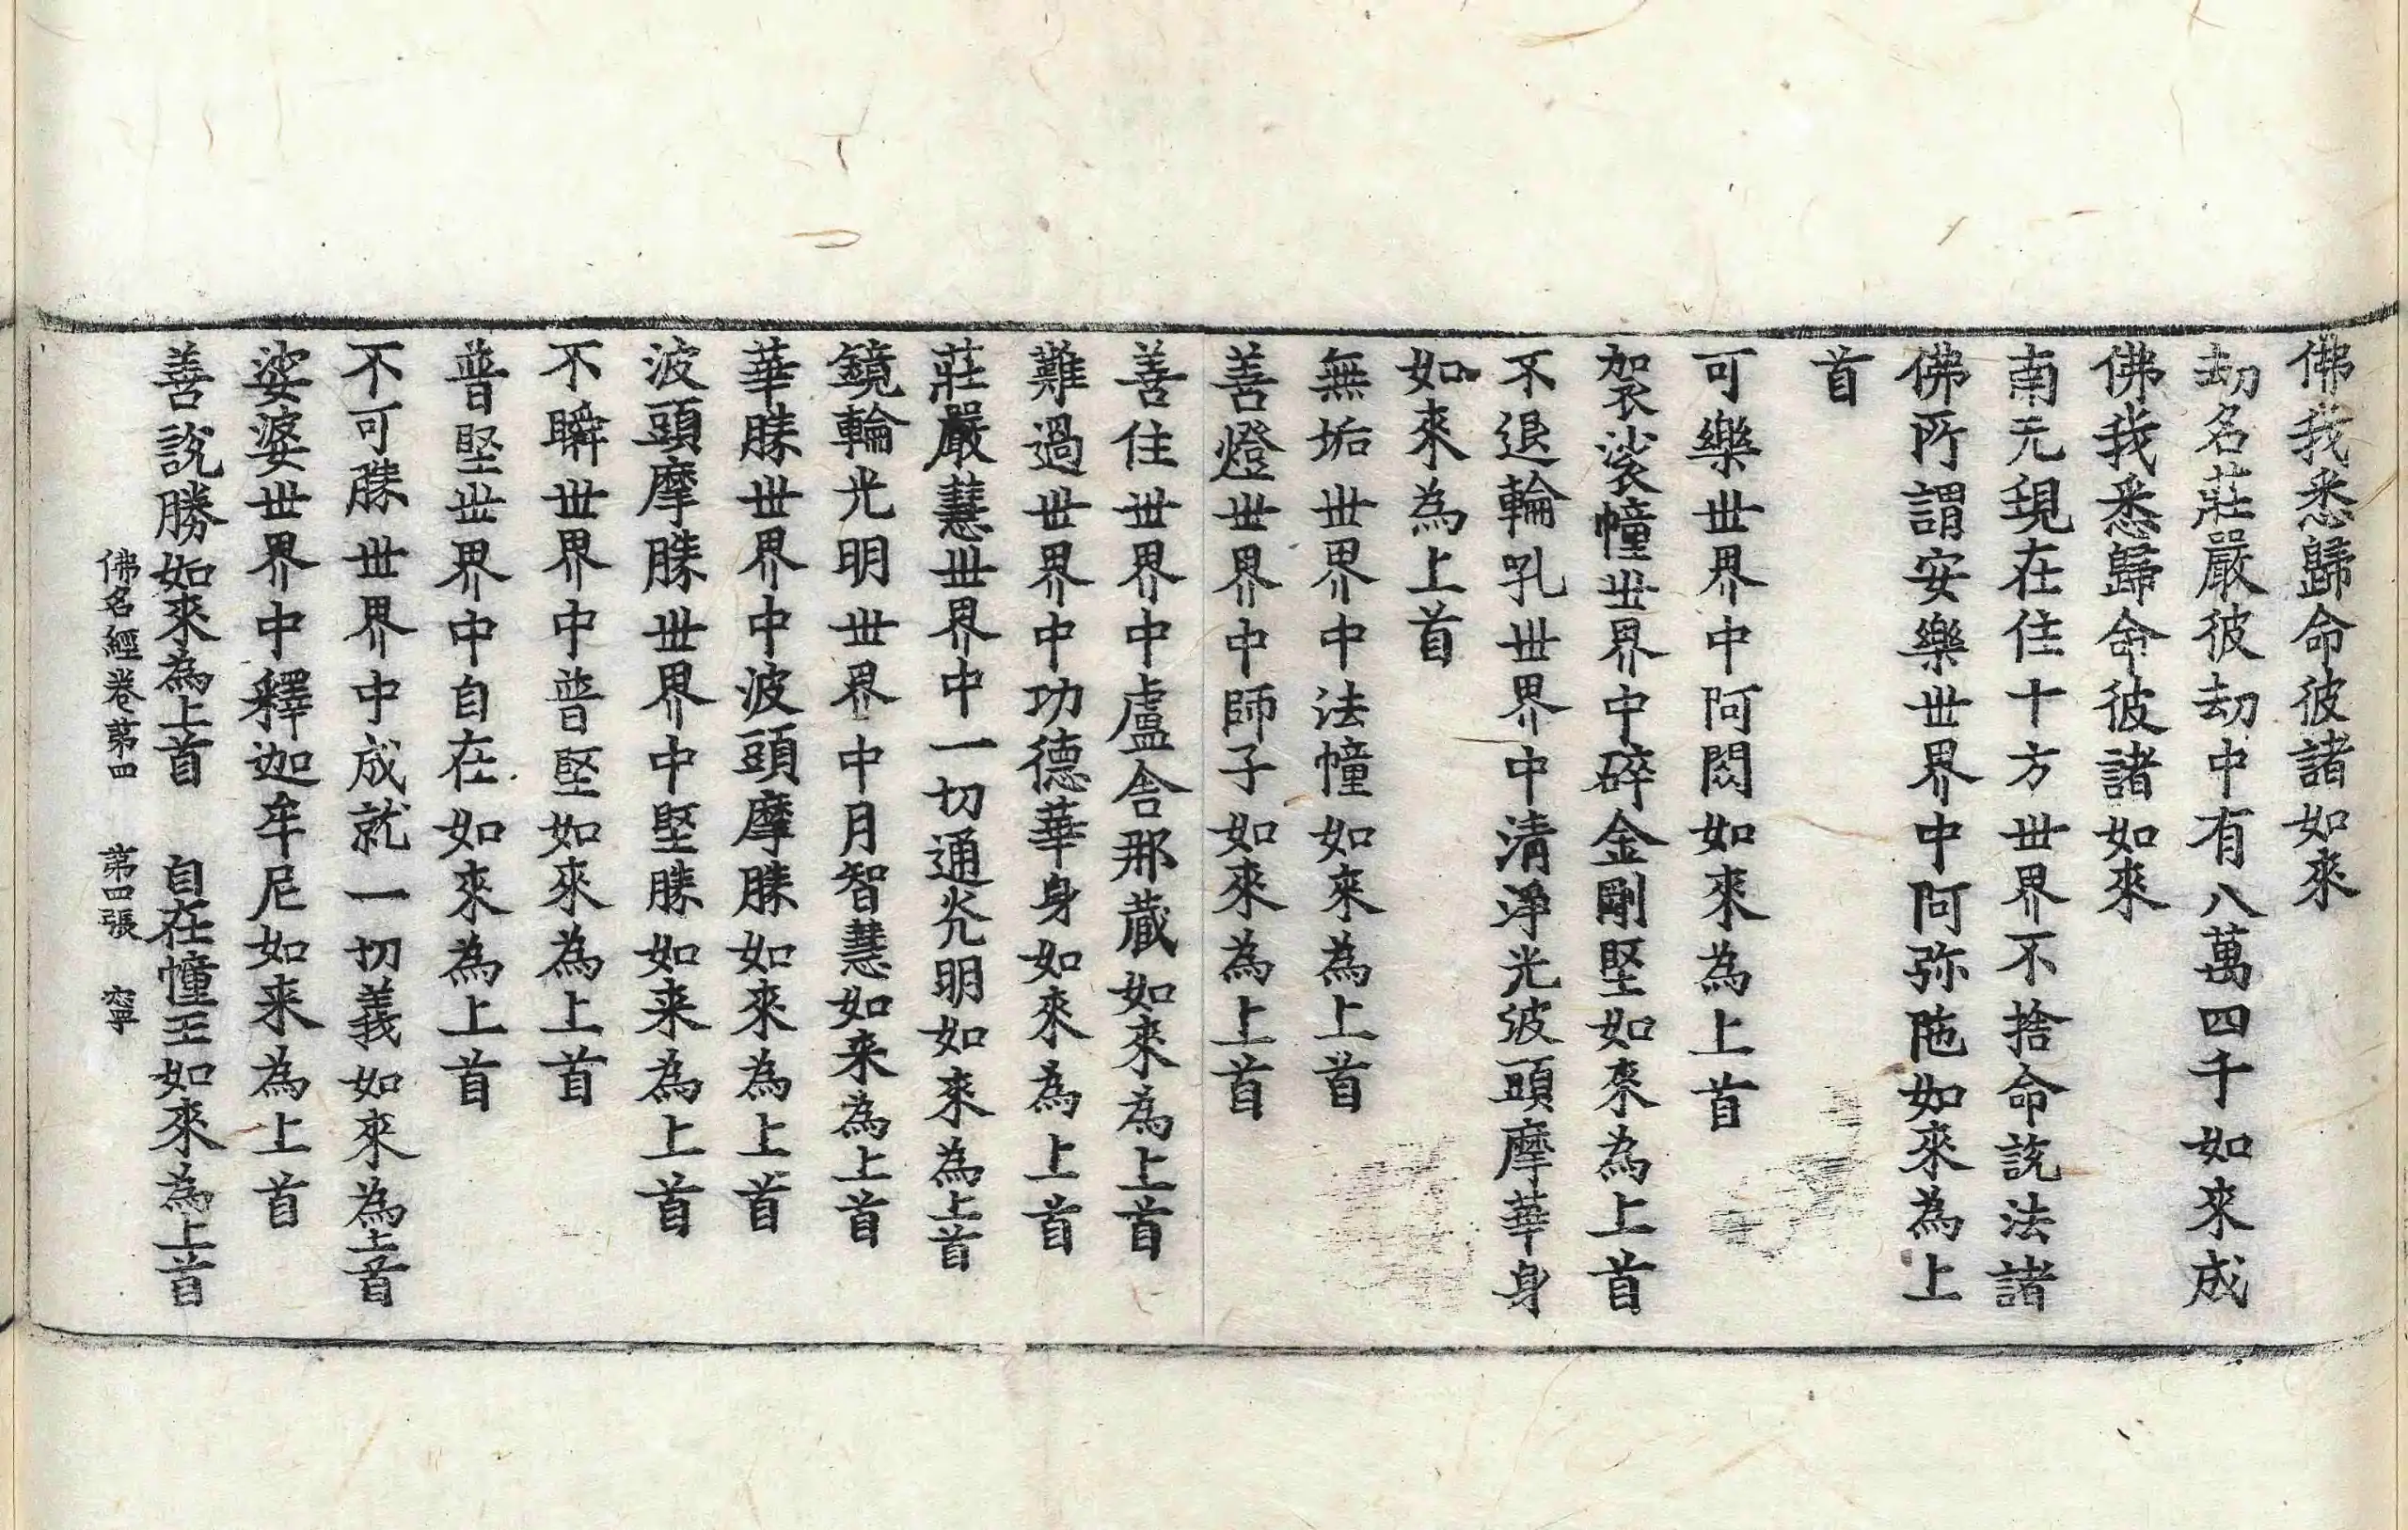 佛我悉歸命彼諸如來
劫名莊嚴彼劫中有八萬四千如來成
佛我悉歸命彼諸如來
南无現在住十方世界不捨命說法諸
佛所謂安樂世界中阿弥陁如來為上
首
可樂世界中阿閦如來為上首
袈裟幢世界中碎金剛堅如來為上首
不退輪吼世界中清淨光波頭摩華身
如來為上首
無垢世界中法幢如來為上首
善燈世界中師子如來為上首
善住世界中盧舍那藏如來為上首
難過世界中功德華身如來為上首
莊嚴慧世界中一切通光明如來為上首
鏡輪光明世界中月智慧如来為上首
華勝世界中波頭摩勝如來為上首
波頭摩勝世界中堅勝如来為上首
不瞬世界中普堅如來為上首
普堅世界中自在如來為上首
不可勝世界中成就一切義如來為上首
娑婆世界中釋迦牟尼如来為上首
善說勝如來為上首 自在幢王如來為上首
佛名經卷第四 第四張 寧